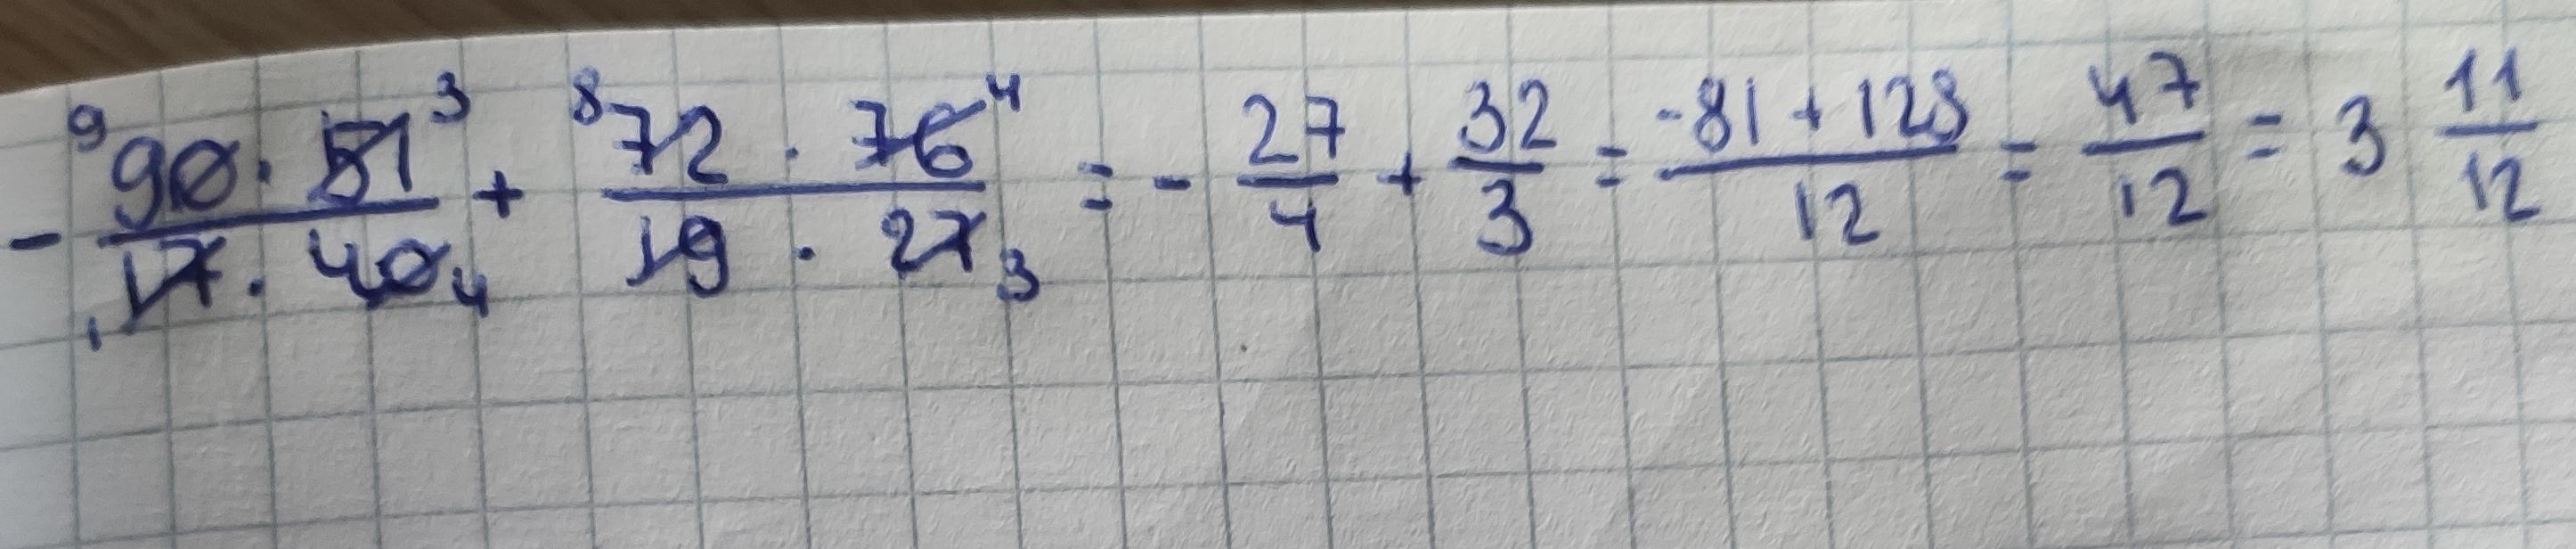 - (90 · 51)/(17 · 40) + (72 · 76)/(19 · 27) = - 27/4 + 32/3 = (-81 + 128)/12 = 47/12 = 3 11/12